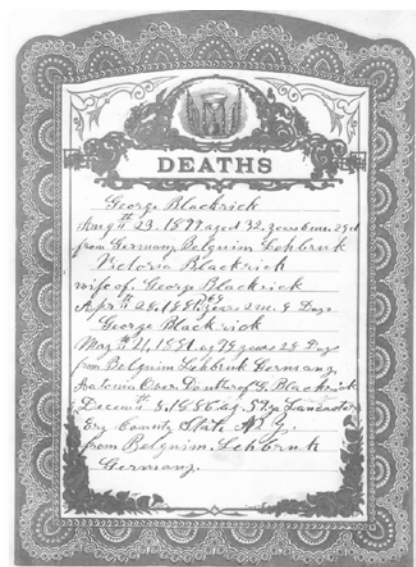 DEATHS
George Blackrick
Aug th 23. 1899 aged 32. years 6 mo. 29 d
from Germany Belgnim Lehbruk
Victoria Blackrick
wife of. George Blackrick
Apr th 28, 1881, 69 years 2 m. 9 Days
George Blackrick
May th 21, 1881 ag 79 years 28 Days
from Belgnim Lehbruk Germany.
Antonia Douter of G. Blackrick
Decem th 8. 1886 ag. 57 y Lancaster
Ery County State N. Y.
from Belgnim. Lehbruk
Germany.